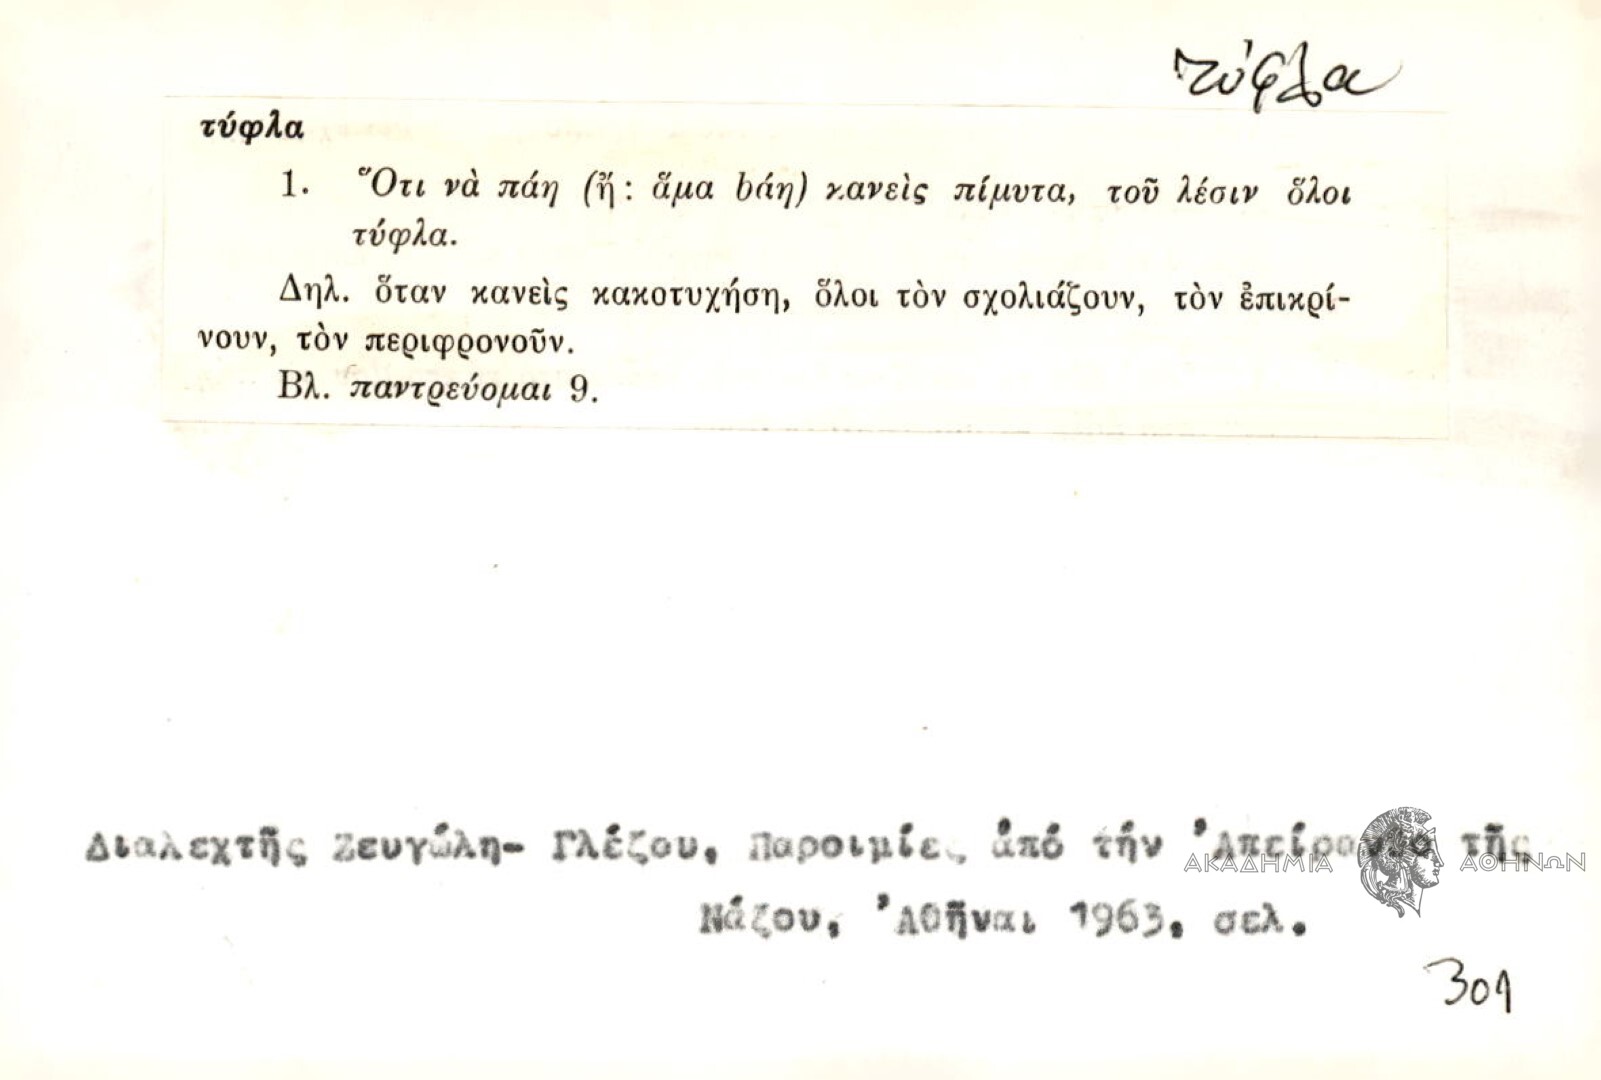 τύφλα
τύφλα
1. Ὅτι νὰ πάη (ἤ: ἅμα bάη) κανεὶς πίμυτα, τοῦ λέσιν ὅλοι
τύφλα.
Δηλ. ὅταν κανεὶς κακοτυχήση, ὅλοι τὸν σχολιάζουν, τὸν ἐπικρί-
νουν, τὸν περιφρονοῦν.
Βλ. παντρεύομαι 9.
Διαλεχτῆς Ζευγώλη- Γλέζου, Παροιμίες ἀπό τήν Ἀπείρανθο τῆς
Νάξου, Ἀθῆναι 1963, σελ.
301
ΑΚΑΔΗΜΙΑ ΑΘΗΝΩΝ